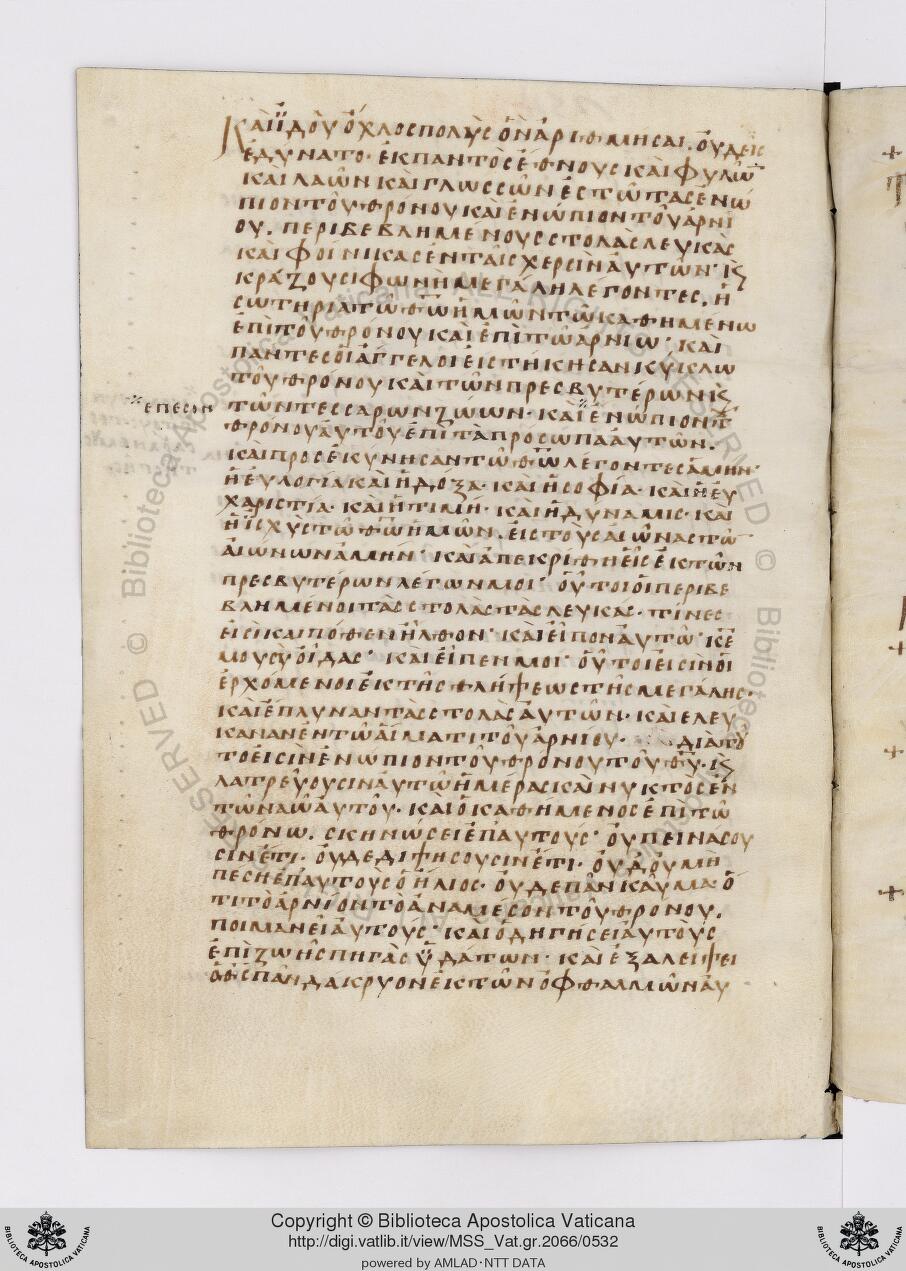 ΚΑὶ ἸΔΟῪ ὌΧΛΟΣ ΠΟΛῪΣ ὋΝ ἈΡΙΘΜΗΣΑΙ. ΟὐΔΕΙΣ
ἘΔΥΝΑΤΟ· ἘΚ ΠΑΝΤῸΣ ἜΘΝΟΥΣ ΚΑῚ ΦΥΛΩ̅
ΚΑΙ ΛΑῶΝ ΚΑῚ ΓΛΩΣΣῶΝ ἙΣΤῶΤΑΣ ἘΝΏ
ΠΙΟΝ ΤΟῦ ΘΡΟΝΟΥ ΚΑῚ ἘΝΏΠΙΟΝ ΤΟῦ ἈΡΝΙ
ΟΥ. ΠΕΡΙΒΕΒΛΗΜΈΝΟΥΣ ΣΤΟΛᾺΣ ΛΕΥΚᾺΣ
ΚΑῚ ΦΟΊΝΙΚΑΣ ἘΝ ΤΑῖΣ ΧΕΡΣῚΝ ΑὐΤῶΝ· Ϗ
ΚΡΆΖΟΥΣΙ ΦΩΝῊ ΜΕΓΆΛΗ ΛΈΓΟΝΤΕΣ. Ἡ
ΣΩΤΗΡΊΑ Τῶ ΘΩ̅ ἩΜῶΝ Τῶ ΚΑΘΗΜΈΝΩ
ἘΠῚ ΤΟῦ ΘΡΌΝΟΥ ΚΑῚ ἘΠῚ Τῶ ἈΡΝΊΩ· ΚΑῚ
ΠΑΝΤΕΣ ΟἹ ἌΓΓΕΛΟΙ ΕἹΣΤΗΚΗΣΑΝ ΚΎΚΛΩ
ΤΟῦ ΘΡΌΝΟΥ ΚΑῚ ΤῶΝ ΠΡΕΣΒΥΤΈΡΩΝ Ϗ
ΕΠΕΣΟΝ
ΤῶΝ ΤΕΣΣΆΡΩΝ ΖΏΩΝ· ΚΑῚ ἘΝΏΠΙΟΝ ΤΟῦ
ΘΡΟΝΟΥ ΑὐΤΟῦ ἘΠῚ ΤᾺ ΠΡΌΣΩΠΑ ΑΥΤῶΝ.
ΚΑῚ ΠΡΟΣΕΚΎΝΗΣΑΝ Τῶ ΘΩ̅ ΛΈΓΟΝΤΕΣ ἈΜΉΝ·
Ἡ ΕὐΛΟΓΊΑ ΚΑῚ Ἡ ΔΌΞΑ· ΚΑῚ Ἡ ΣΟΦΊΑ· ΚΑῚ Ἡ Εὐ
ΧΑΡΙΣΤΊΑ· ΚΑῚ Ἡ ΤΙΜΉ· ΚΑῚ Ἡ ΔΎΝΑΜΙΣ· ΚΑῚ
Ἡ ἸΣΧῪΣ Τῶ ΘΩ̅ ἩΜῶΝ. ΕἸΣ ΤΟῪΣ ΑἸῶΝΑΣ Τῶ
ΑἸΏΝΩΝ ἈΜΉΝ· ΚΑῚ ἈΠΕΚΡΊΘΗ ΕἿΣ ἘΚ ΤῶΝ
ΠΡΕΣΒΥΤΈΡΩΝ ΛΈΓΩΝ ΜΟΙ· ΟὗΤΟΙ ΟἹ ΠΕΡΙΒΕ
ΒΛΗΜΈΝΟΙ ΤᾺΣ ΣΤΟΛᾺΣ ΤᾺΣ ΛΕΥΚΆΣ· ΤΊΝΕΣ
ΕἸΣῚ ΚΑΙ ΠΌΘΕΝ ἮΛΘΟΝ· ΚΑῚ ΕἾΠΟΝ ΑὐΤῶ· ΚΕ̅
ΜΟΥ ΣῪ ΟἾΔΑΣ· ΚΑῚ ΕἾΠΕΝ ΜΟΙ· ΟὗΤΟΙ ΕἸΣΙΝ ΟἹ
ἘΡΧΌΜΕΝΟΙ ἘΚ ΤῆΣ ΘΛΊΨΕΩΣ ΤῆΣ ΜΕΓΆΛΗΣ·
ΚΑῚ ἘΠΛΥΝΑΝ ΤᾺΣ ΣΤΟΛᾺΣ ΑὐΤῶΝ· ΚΑῚ ΕΛΕΎ
ΚΑΝΑΝ ἘΝ Τῶ ΑἽΜΑΤΙ ΤΟῦ ἈΡΝΊΟΥ· ΔΙᾺ ΤΟῦ
ΤΟ ΕἸΣῚΝ ἘΝΏΠΙΟΝ ΤΟῦ ΘΡΟΝΟΥ ΤΟῦ ΘΥ̅· Ϗ
ΛΑΤΡΕΎΟΥΣΙΝ ΑὐΤῶ ἩΜΈΡΑΣ ΚΑῚ ΝΥΚΤΟΣ ἘΝ
ΤῶΝΑῶ ΑὐΤΟῦ· ΚΑῚ Ὁ ΚΑΘΉΜΕΝΟΣ ἘΠῚ Τῶ
ΘΡΟΝΩ. ΣΚΗΝΏΣΕΙ ἘΠ ΑὐΤΟΎΣ· ΟὐΠΕΙΝΑΣΟΥ
ΣΙΝ ἜΤΙ· ΟὐΔΕ ΔΙΨΗΣΟΥΣΙΝ ἜΤΙ· ΟὐΔ ΟὐΜῊ
ΠΕΣΗ ἘΠ ΑὐΤΟῪΣ Ὁ ἭΛΙΟΣ· ΟὐΔΕ ΠᾶΝ ΚΑῦΜΑ· Ὅ
ΤΙ ΤῸ ἈΡΝΊΟΝ ΤῸ ἈΝΑΜΈΣΟΝ ΤΟῦ ΘΡΟΝΟΥ.
ΠΟΙΜΑΝΕῖ ΑὐΤΟΎΣ· ΚΑῚ ὉΔΗΓΉΣΕΙ ΑὐΤΟῪΣ
ἘΠῚ ΖΩῆΣ ΠΗΓᾺΣ ὙΔΆΤΩΝ· ΚΑῚ ἘΞΑΛΕΊΨΕΙ
Ὁ ΘΣ̅ ΠΑΝ ΔΑΚΡΥΟΝ ἘΚ ΤῶΝ ὈΦΘΑΛΜῶΝ Αὐ
Copyright © Biblioteca Apostolica Vaticana
http://digi.vatlib.it/view/MSS_Vat.gr.2066/0532
powered by AMLAD·NTT DATA